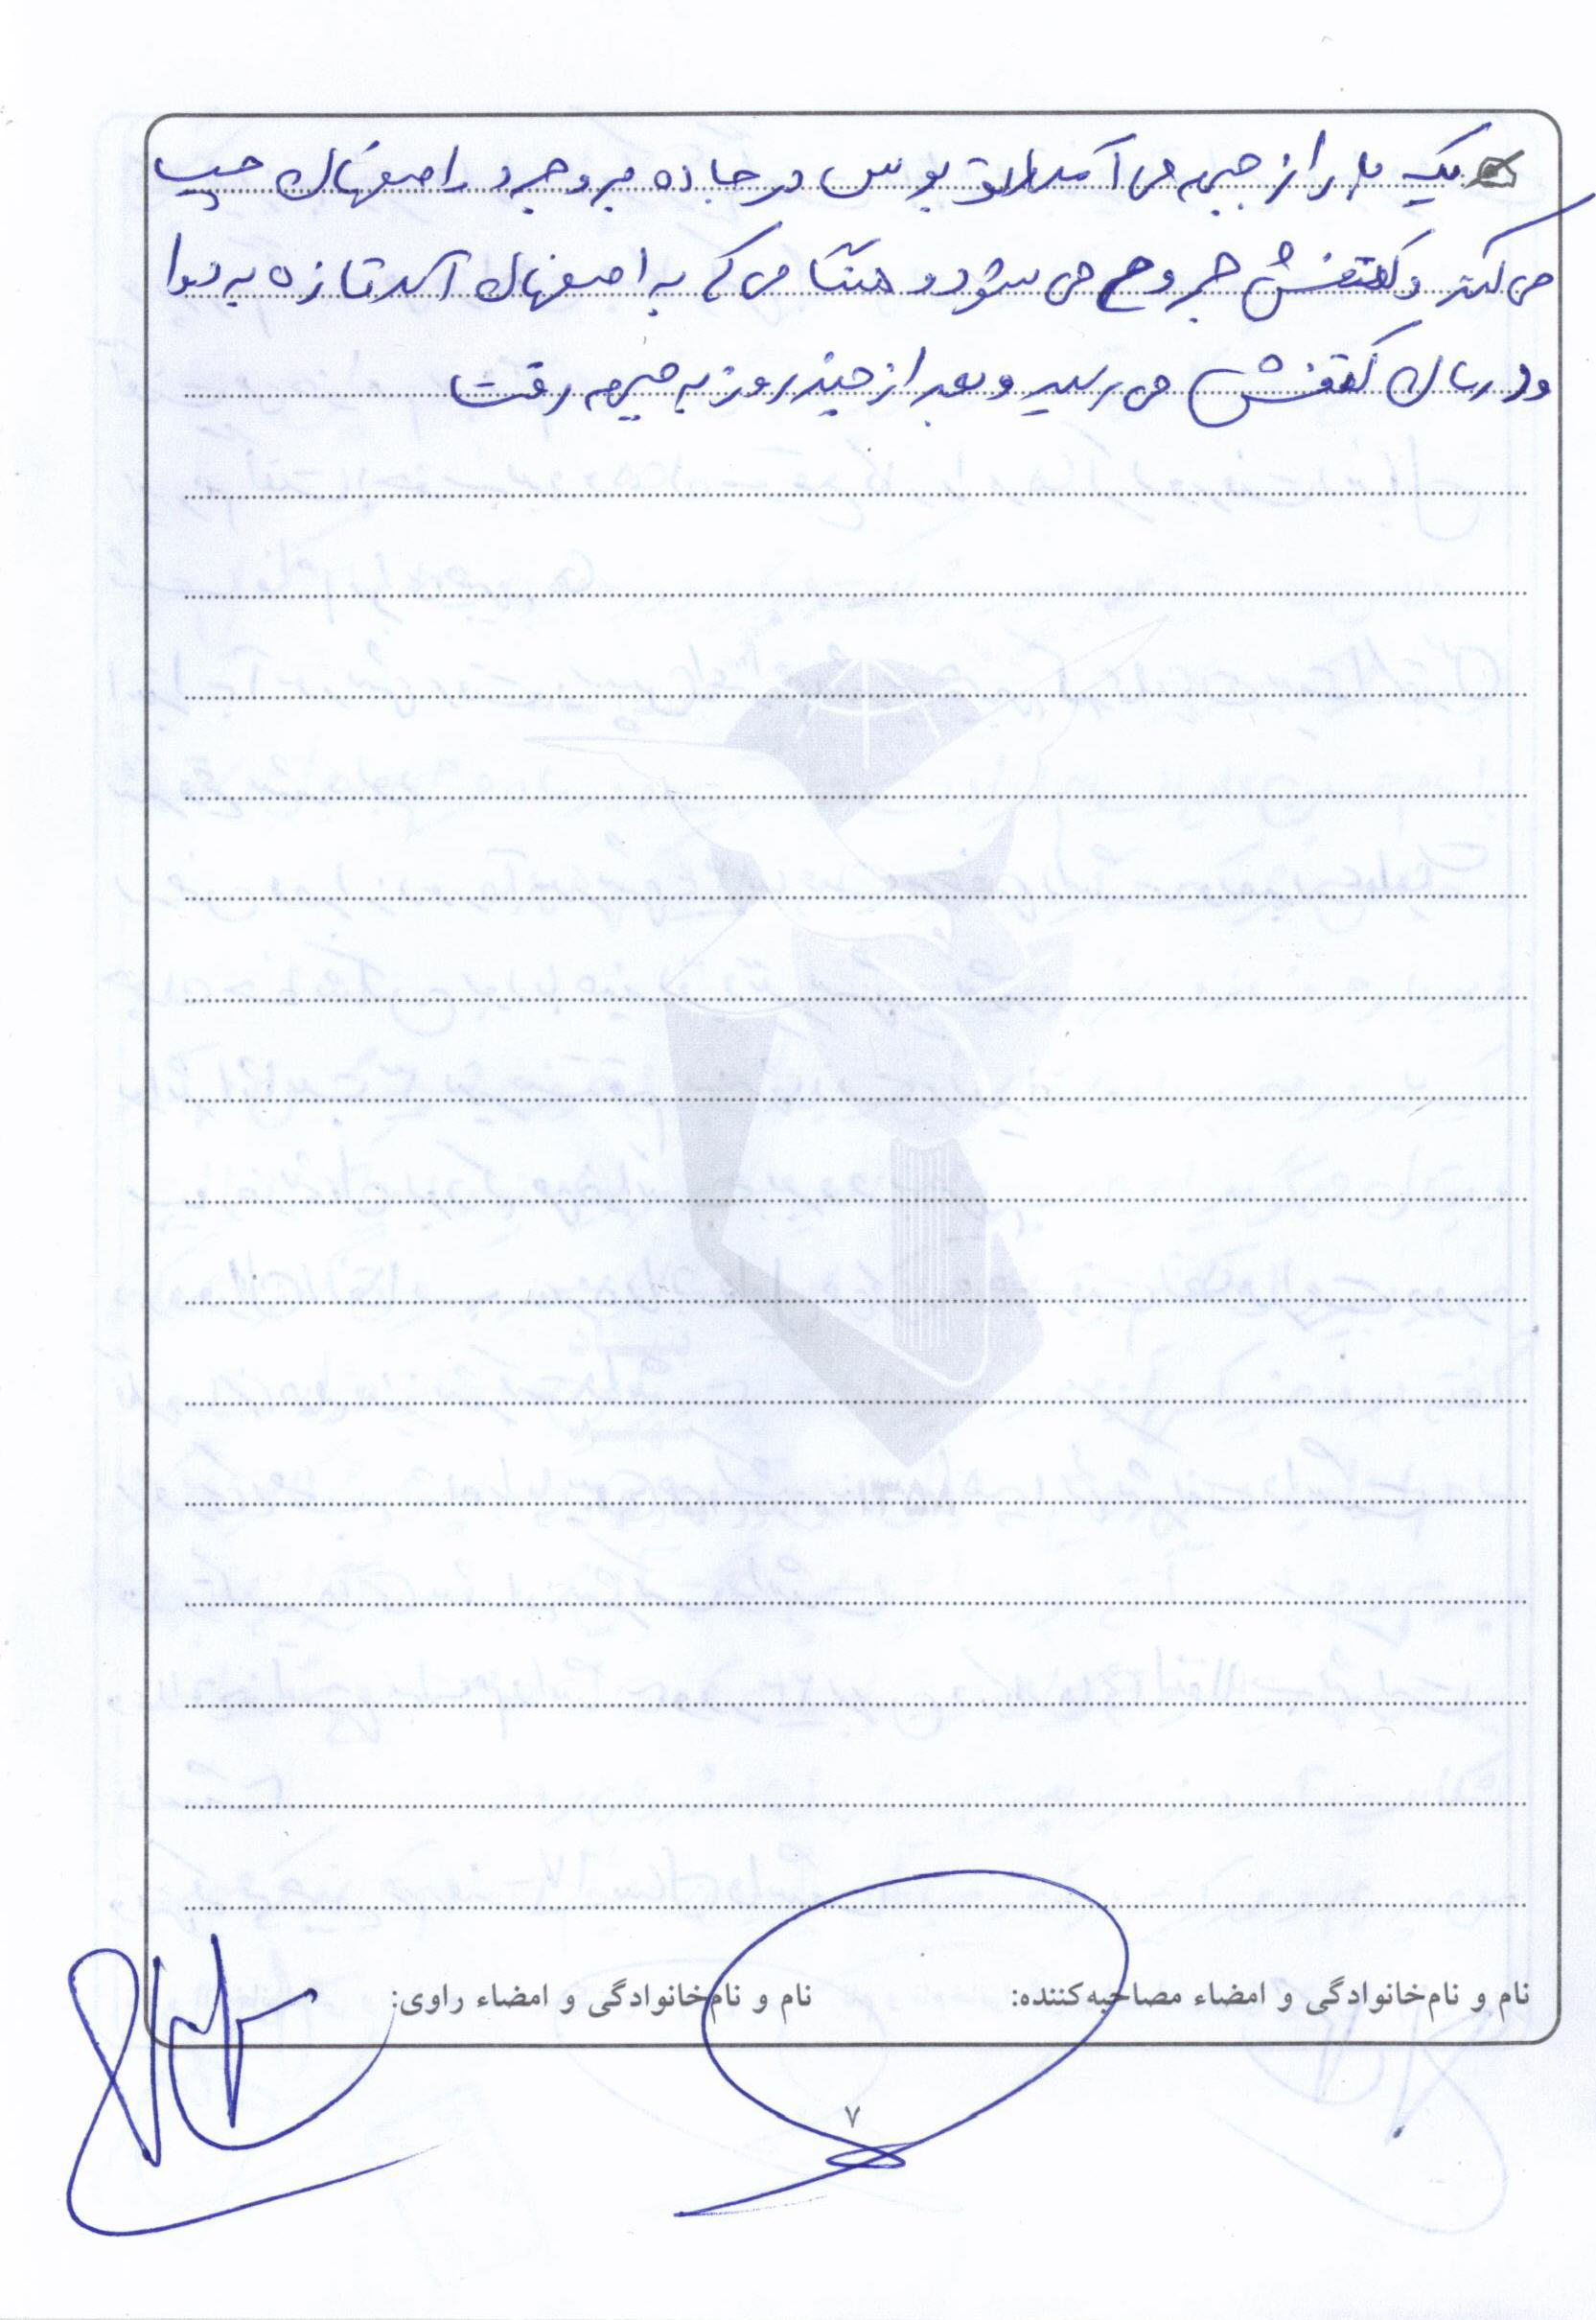 یک بار از جبهه می آمد اتوبوس در جاده بروجرد اصفهان چپ
می کند و کتفش مجروح می شود و هنگامی که به اصفهان آمد تازه به دوا
و درمان کتفش می رسید و بعد از چند روز به جبهه رفت
نام و نام‌خانوادگی و امضاء مصاحبه‌کننده:
نام و نام‌خانوادگی و امضاء راوی:
۷